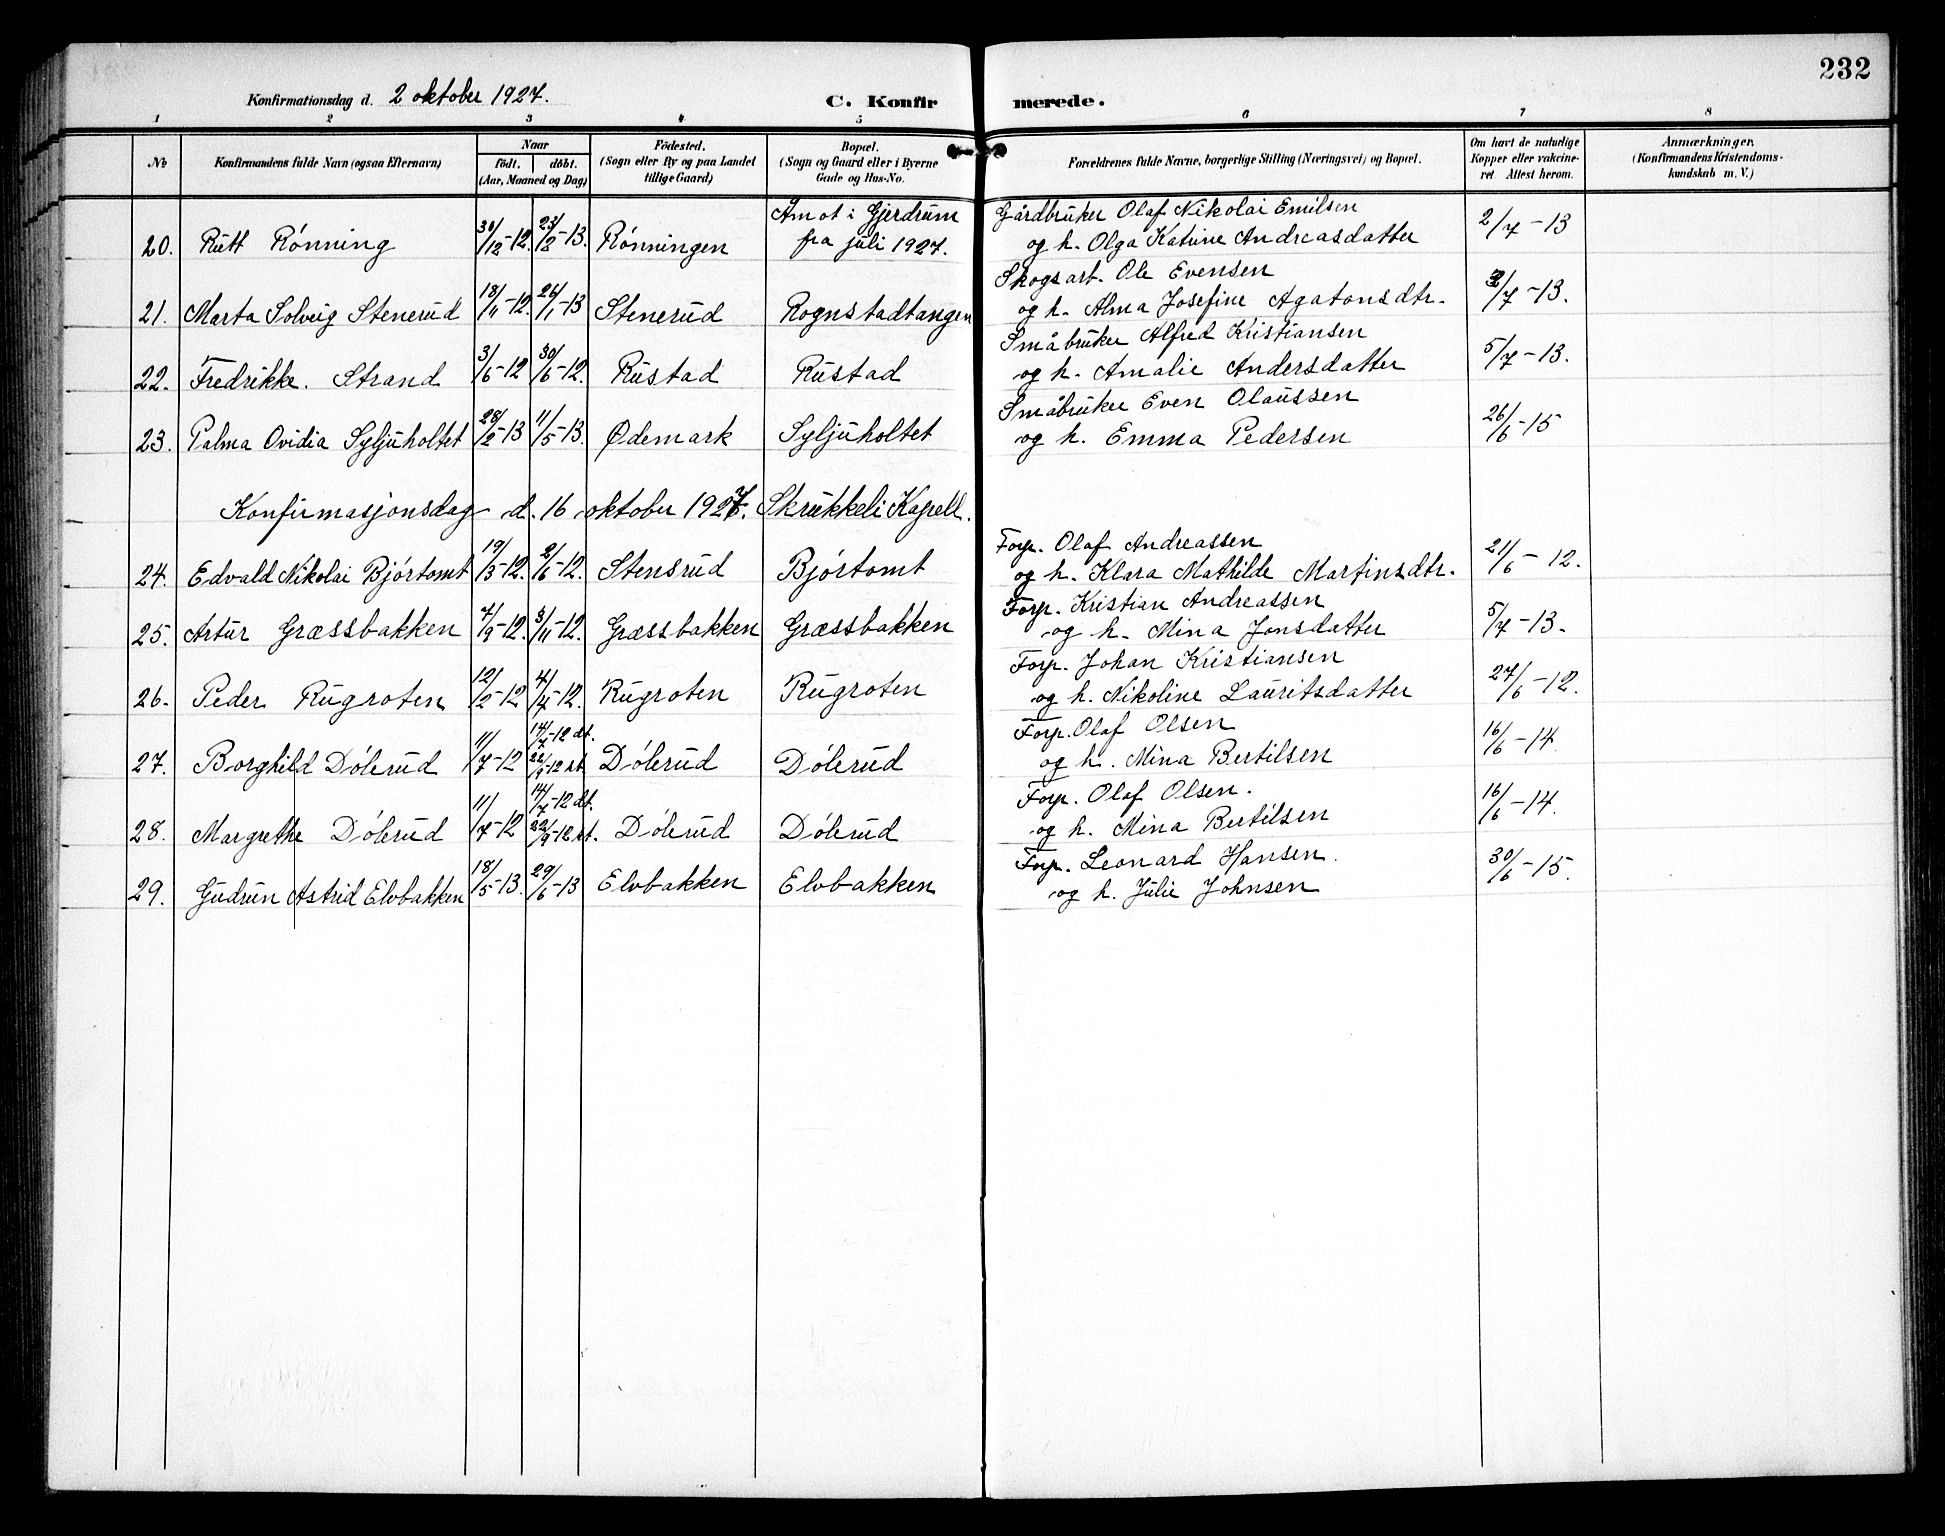 232
Konfirmationsdag d. 2 oktober 1927. C. Konfirmerede.
1 2 3 4 5 6 7 8
No Konfirmandens fulde Navn (ogsaa Efternavn) Naar født. døbt. (Aar, Maaned og Dag) Fødested. (Sogn eller By og paa Landet tillige Gaard) Bopæl. (Sogn og Gaard eller i Byerne Gade og Hus-No. Forældrenes fulde Navne, borgerlige Stilling (Næringsvei) og Bopæl. Om havt de naturlige Kopper eller vakcineret Attest herom. Anmærkninger, (Konfirmandens Kristendomskundskab m. V.)
Åmot i Gjerdrum Gårdbruker Olaf Nikolai Emilsen
20. Rutt Rönning 31/12-12. 23/2-13. Rönningen fra juli 1927. og h. Olga Katrine Andreasdatter 2/7-13
Skogsarb. Ole Evensen
21. Marta Solveig Stenerud 18/11-12. 26/1-13 Stenerud Rognstadtangen og h. Alma Josefine Agatonsdtr. 2/7-13.
Småbruker Alfred Kristiansen
22. Fredrikke. Strand 3/5-12 30/6-12. Rustad Rustad og h. Amalie Andersdatter 5/7-13.
Småbruker Even Olaussen
23. Palma Ovidia Syljuholtet 28/2-13 11/5-13. Ødemark Syljuholtet og h. Emma Pedersen 26/6-15
Konfirmasjonsdag d. 16 oktober 1927. Skrukkeli Kapell.
Forp. Olaf Andreassen
24. Edvald Nikolai Björtomt 19/3-12. 2/6-12. Stensrud Björtomt og h. Klara Mathilde Martinsdtr. 21/6-12.
Forp. Kristian Andreassen
25. Artur Græssbakken 7/9-12. 3/11-12. Græssbakken Græssbakken og h. Mina Jonsdatter 5/7-13.
Forp. Johan Kristiansen
26. Peder Rugroten 12/2-12 4/4-12. Rugroten Rugroten og h. Nikoline Lauritsdatter 27/6-12.
14/7-12 dt. Forp. Olaf Olsen
27. Borghild Dölerud 11/7-12 22/9-12 st. Dölerud Dölerud og h. Mina Bertilsen 16/6-14.
14/7-12 dt. Forp. Olaf Olsen.
28. Margrethe Dölerud 11/7-12 22/9-12 st. Dölerud Dölerud og h. Mina Bertilsen 16/6-14.
Forp. Leonard Hansen.
29. Gudrun Astrid Elvbakken 18/5-13. 29/6-13 Elvbakken Elvbakken og h. Julie Johnsen 30/6-15.